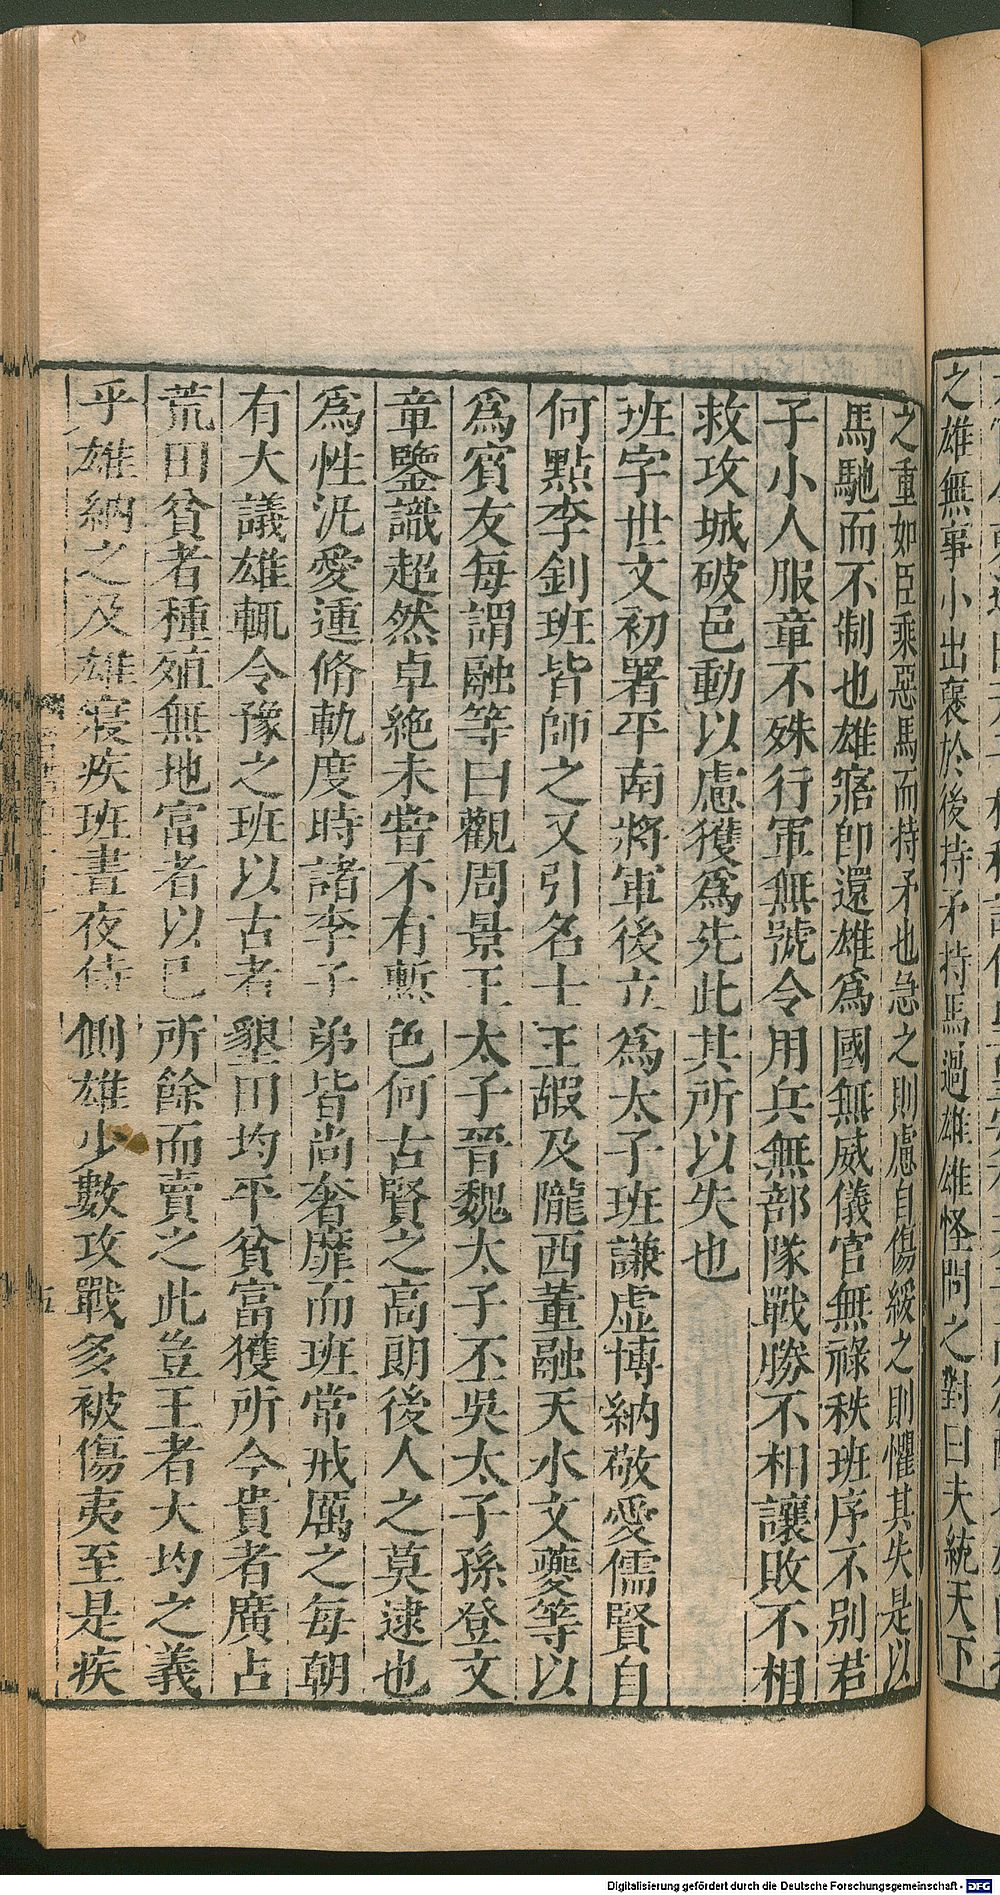 之雄無事小出褒於後持矛持馬過雄雄怪問之對曰夫統天下
之重如臣乘惡馬而持矛也急之則慮自傷緩之則懼其失是以
馬馳而不制也雄寤即還雄爲國無威儀官無祿秩班序不別君
子小人服章不殊行軍無號令用兵無部隊戰勝不相讓敗不相
救攻城破邑動以慮獲爲先此其所以失也
班字世文初署平南將軍後立爲太子班謙虛博納敬愛儒賢自
何點李釗班皆師之又引名士王嘏及隴西董融天水文夔等以
爲賓友每謂融等曰觀周景王太子晉魏太子丕吳太子孫登文
章鑒識超然卓絶未嘗不有慙色何古賢之高朗後人之莫逮也
爲性汎愛運脩軌度時諸李子弟皆尚奢靡而班常戒厲之每朝
有大議雄輒令豫之班以古者墾田均平貧富獲所今貴者廣占
荒田貧者種殖無地富者以已所餘而賣之此豈王者大均之義
乎雄納之及雄寢疾班晝夜侍側雄少數攻戰多被傷夷至是疾
五
Digitalisierung gefördert durch die Deutsche Forschungsgemeinschaft - DFG